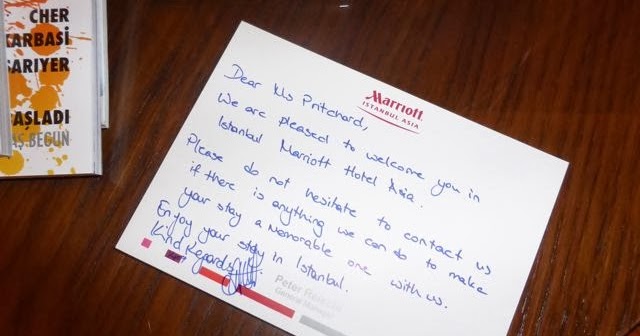 CHER
KARBASİ
SARIYER
AŞLADI
BEGÜN
Marriott
ISTANBUL ASIA
Dear Ms Pritchard,
We are pleased to welcome you in
Istanbul Marriott Hotel Asia.
Please do not hesitate to contact us
if there is anything we can do to make
your stay a memorable one with us.
Enjoy your stay in Istanbul.
Kind Regards
Peter
General Manager